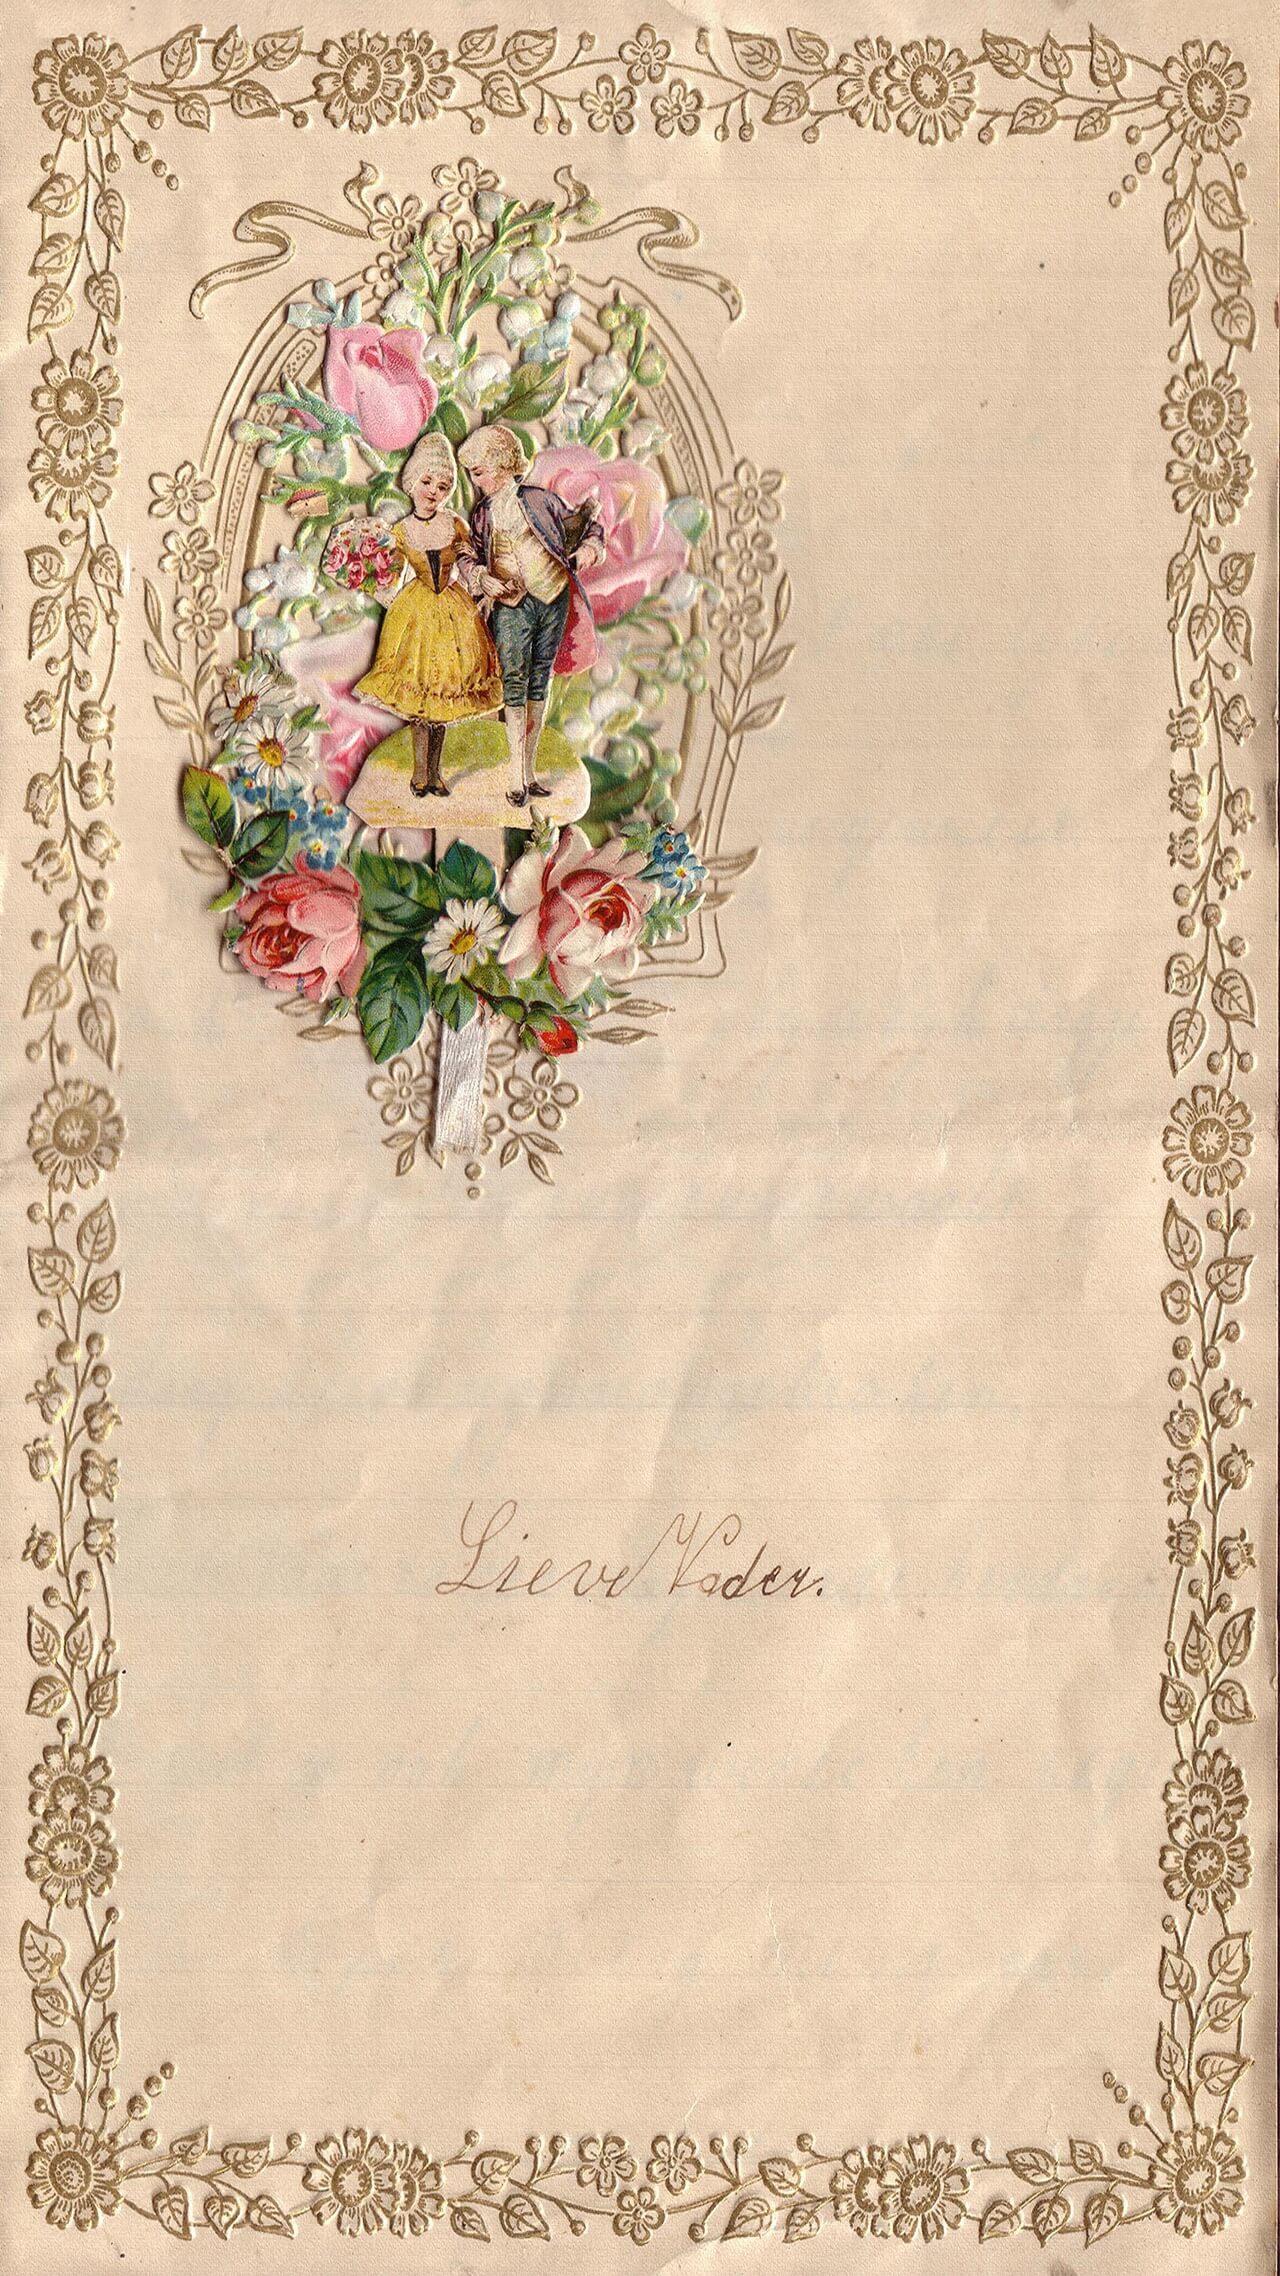 Lieve Vader.